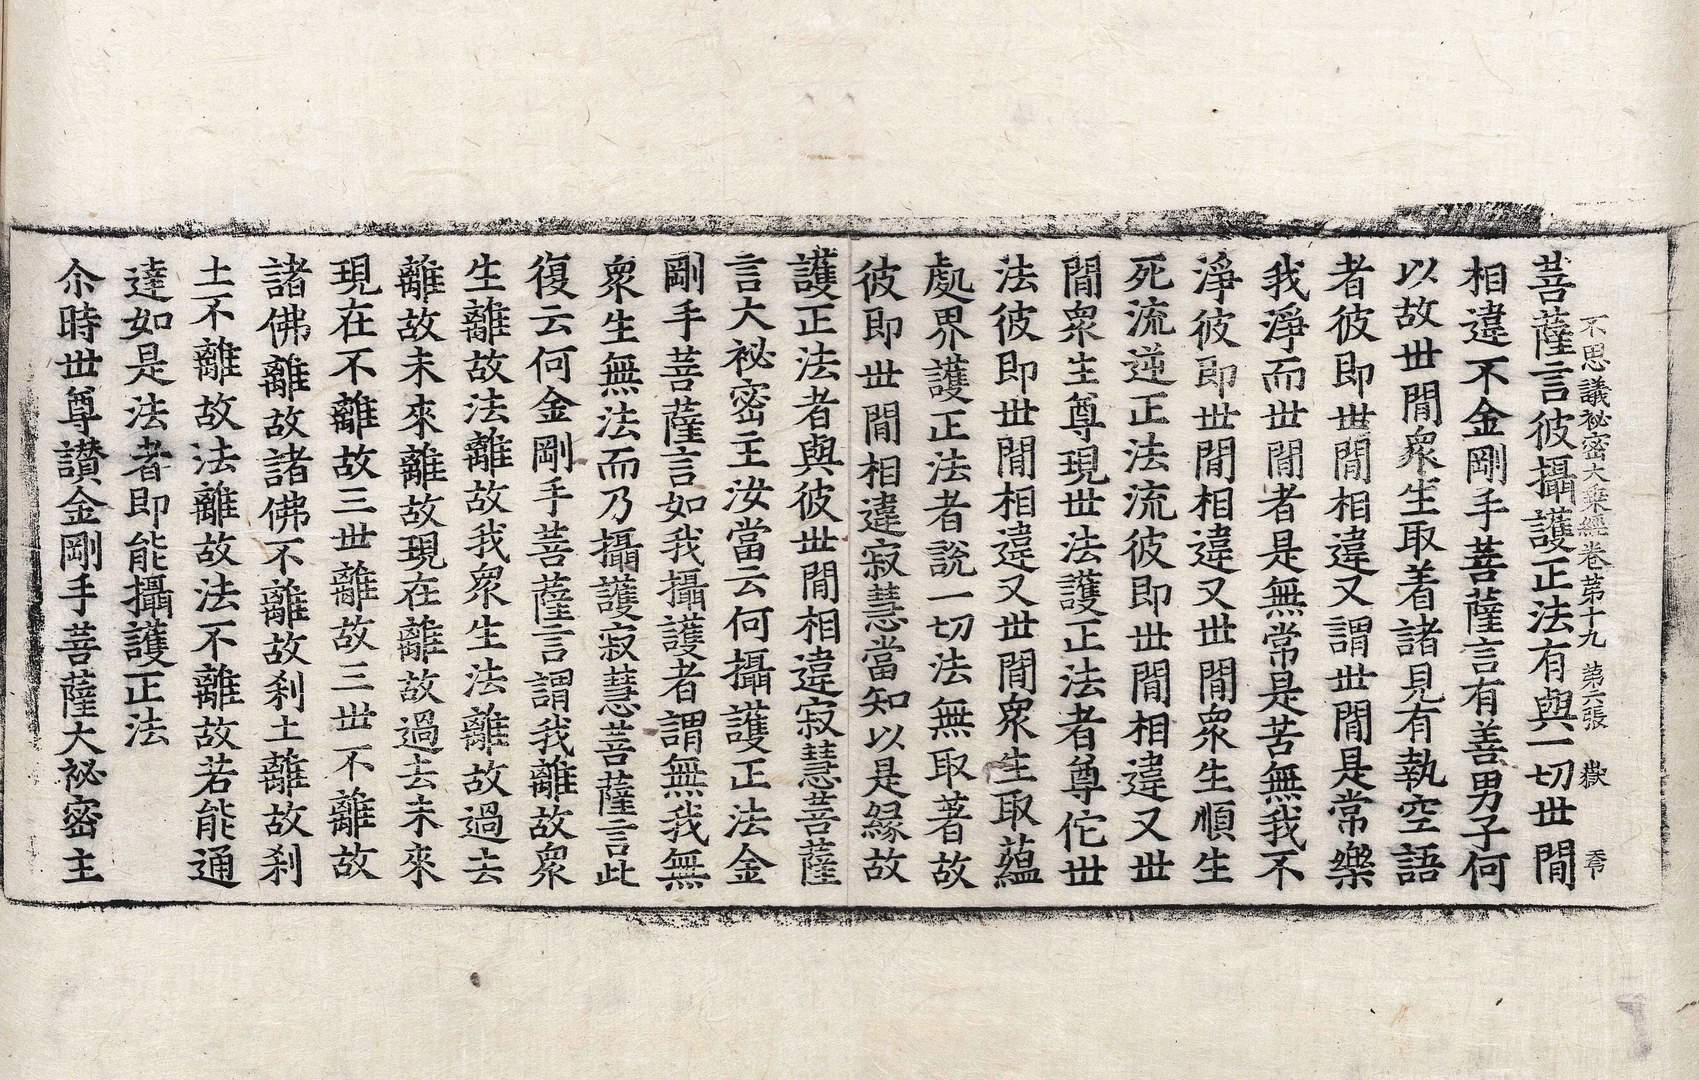 不思議祕密大乘經卷第十九 第六張
菩薩言彼攝護正法有與一切世間
相違不金剛手菩薩言有善男子何
以故世間衆生取着諸見有執空語
者彼即世間相違又謂世間是常樂
我淨而世間者是無常是苦無我不
淨彼即世間相違又世間衆生順生
死流逆正法流彼即世間相違又世
間衆生尊現世法護正法者尊佗世
法彼即世間相違又世間衆生取蘊
處界護正法者說一切法無取著故
彼即世間相違寂慧當知以是緣故
護正法者與彼世間相違寂慧菩薩
言大祕密主汝當云何攝護正法金
剛手菩薩言如我攝護者謂無我無
衆生無法而乃攝護寂慧菩薩言此
復云何金剛手菩薩言謂我離故衆
生離故法離故我衆生法離故過去
離故未來離故現在離故過去未來
現在不離故三世離故三世不離故
諸佛離故諸佛不離故刹土離故刹
土不離故法離故法不離故若能通
達如是法者即能攝護正法
尒時世尊讃金剛手菩薩大祕密主